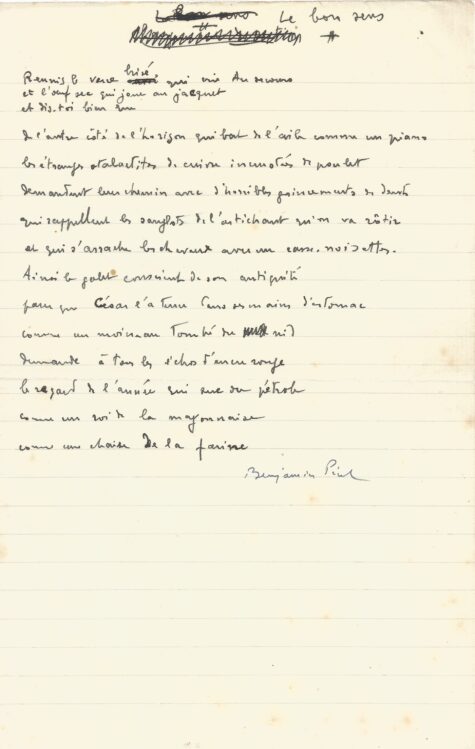 Le bon sens
Le bon sens
Reunis le verre brisé qui crie Au secours
et l'œuf sec qui joue au jacquet
et dis-toi bien que
de l'autre côté de l'horizon qui bat de l'aile comme un piano
les étranges stalactites de cuivre incrustés de poulet
demandent leur chemin avec d'horribles grincements de dents
qui rappellent les sanglots de l'artichaut qu'on va rôtir
et qui s'arrache les cheveux avec un casse-noisettes.
Ainsi le galet conscient de son antiquité
parce que César l'a tenu dans ses mains d'estomac
comme un moineau tombé du nid
demande à tous les échos d'encre rouge
le regard de l'année qui sue du pétrole
comme un roi de la mayonnaise
comme une chaise De la farine
Benjamin Péret